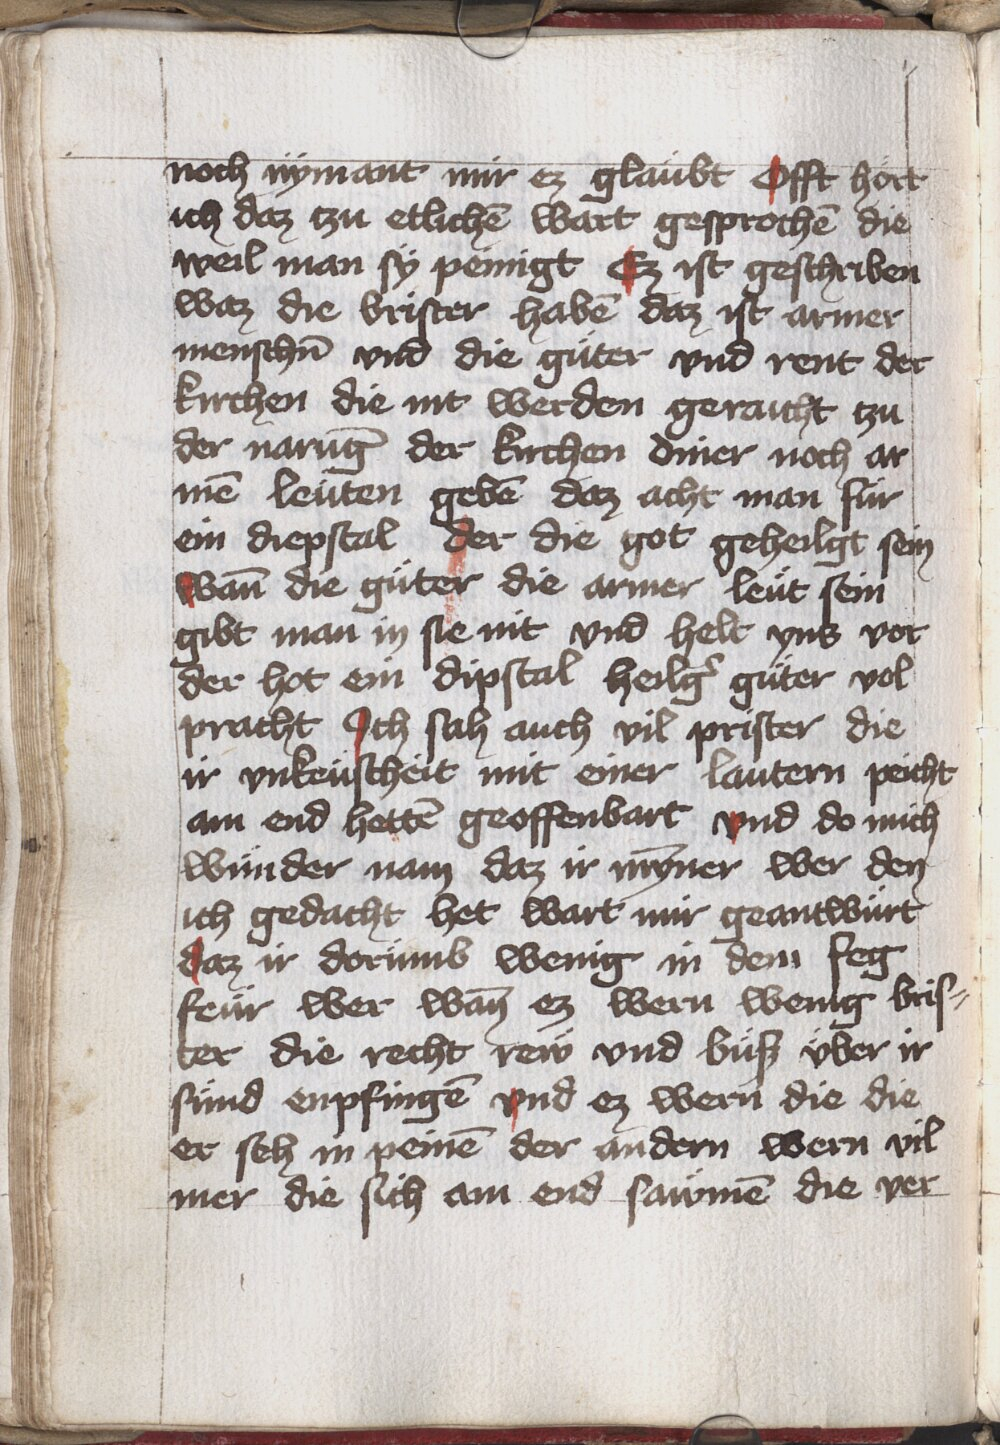 noch nymant mir ez glaubt Offt hört
ich daz tzu etlichē wart gesprochē die
weil man sÿ peinigt Ez ist geschriben
waz die brister habē daz ist armer
menschn̄ vnd die güter vnd rent der
kirchen die nit werden geraicht tzu
der narūg der kirchen diner noch ar
mē leüten gebē daz acht man für
ein diepstal der die got geheilgt sein
wan̄ die güter die armer leüt sein
gibt man in sie nit vnd helt yns vor
der hot ein dipstal heilgʾ güter vol
pracht Ich sah auch vil prister die
ir vnkeüscheit mit einer lautern peicht
am end hettē geoffenbart vnd do mich
wünder nam daz ir mȳner wer den
ich gedacht het wart mir geantwürt
daz ir dorümb wenig in dem feg
feür wer wan̄ ez wern wenig bris⸗
ter die recht rew vnd büß über ir
sünd enpfingē vnd ez wern die die
er seh in peinē der andern wern vil
mer die sich am end sawmē die ver